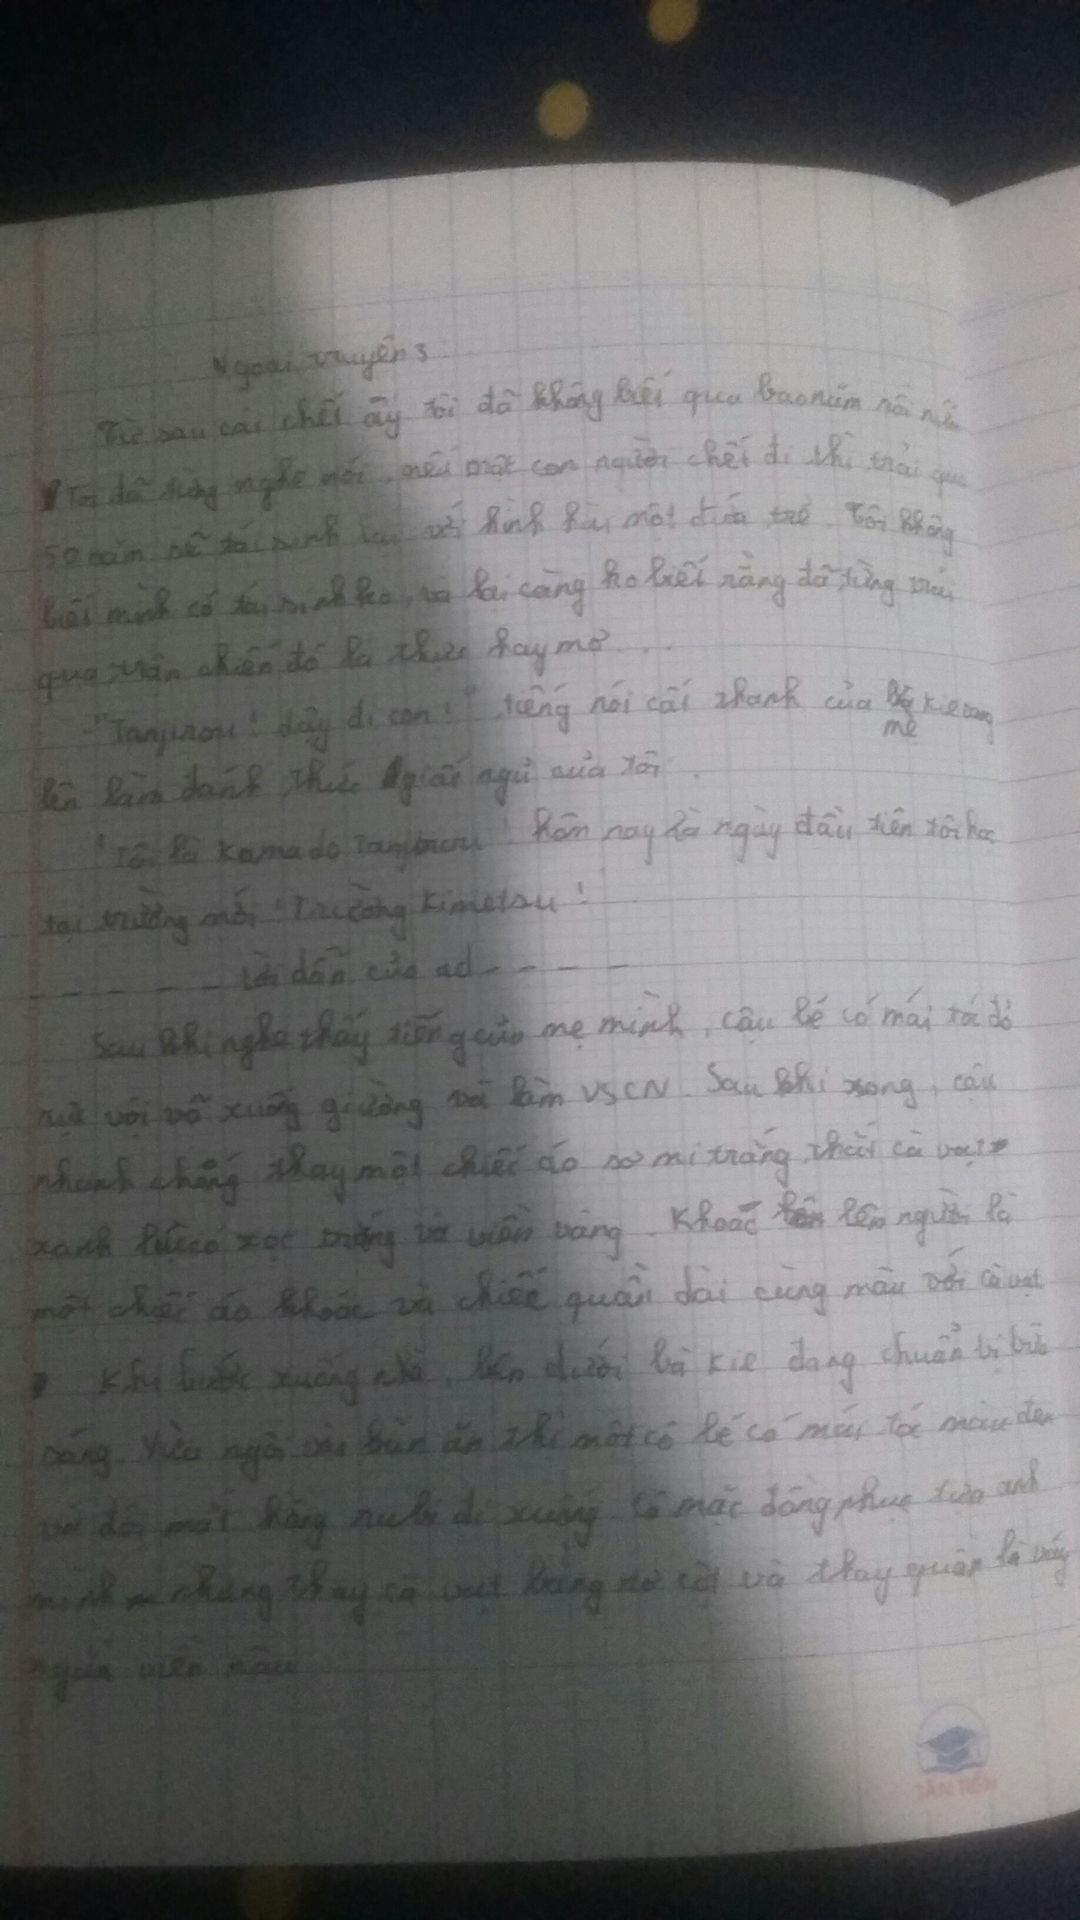 Ngoại truyện 3
Từ sau cái chết ấy tôi đã không biết qua bao năm rồi
Tôi đã từng nghe nói, nếu một con người chết đi thì trải qua
50 năm sẽ tái sinh lại với hình hài một đứa trẻ. Tôi không
biết mình có tái sinh ko, và lại càng ko biết rằng đã từng trải
qua trận chiến đó là thực hay mơ...
"Tanjirou! dậy đi con!" tiếng nói cất thanh của Kie
mẹ
lên làm đánh thức giấc ngủ của tôi.
"Tôi là Kamado Tanjirou! hôm nay là ngày đầu tiên tôi học
tại trường mới "Trường Kimetsu!
- - - - - Lời dẫn của ad - - - -
Sau khi nghe thấy tiếng của mẹ mình, cậu bé có mái tóc đỏ
rực vội vã xuống giường và làm VSCN. Sau khi xong, cậu
nhanh chóng thay một chiếc áo sơ mi trắng, thắt cà vạt
xanh lục có sọc trắng và viền vàng. Khoác lên người là
một chiếc áo khoác và chiếc quần dài cùng màu với cà vạt
Khi bước xuống nhà, bên dưới bà Kie đang chuẩn bị bữa
sáng. Vừa ngồi vào bàn ăn thì một cô bé có mái tóc màu đen
và đôi mắt hồng ruby đi xuống. Cô mặc đồng phục tựa anh
mình nhưng thay cà vạt bằng nơ cài và thay quần là váy
ngắn viền nâu
TÂN TIẾN